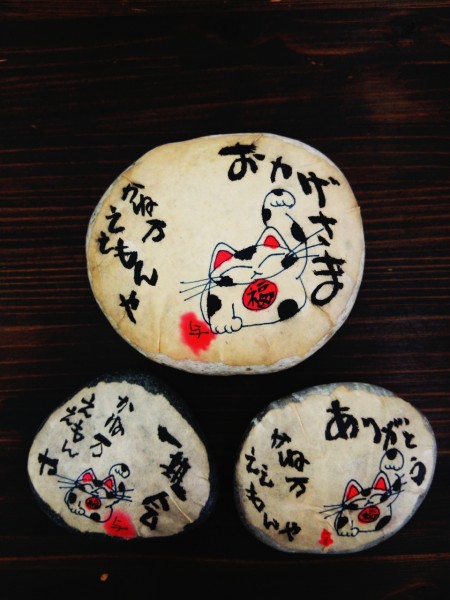 おかげさま
かね万
ええもん
や
福
一期一会
かね万
ええもん
や
ありがとう
かね万
ええ
もんや